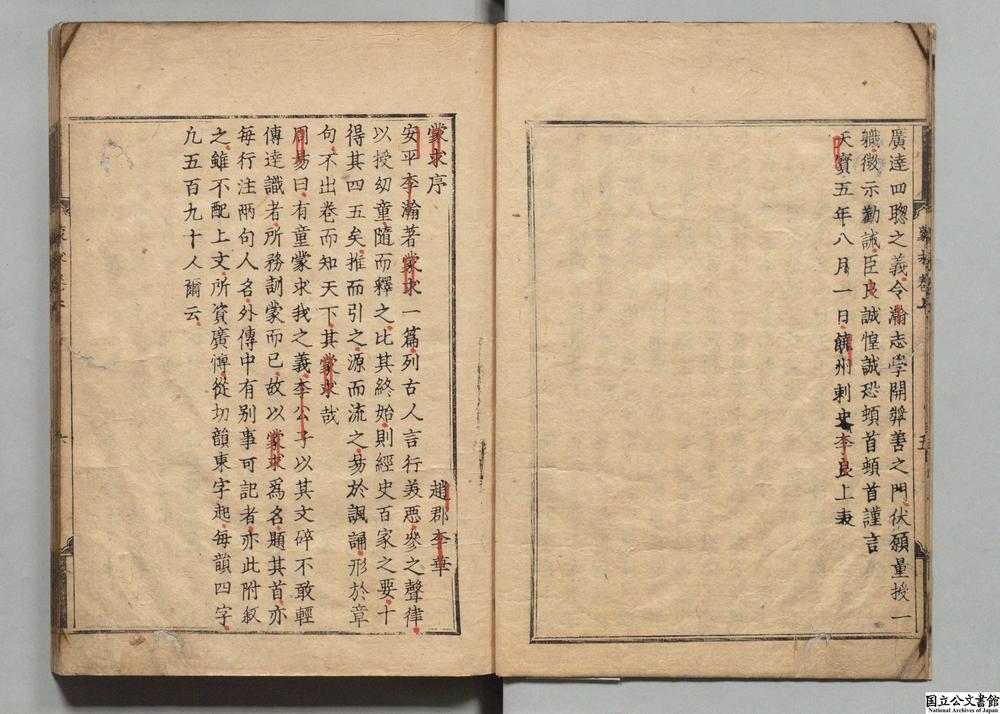 廣達四聰之義令瀚志學開奬善之門伏願量授一
職微示勸誡臣良誠惶誠恐頓首頓首謹言
天寶五年八月一日饒州刺史李良上表
蒙求序
趙郡李華
安平李瀚著蒙求一篇列古人言行美惡參之聲律
以授幼童隨而釋之比其終始則經史百家之要十
得其四五矣推而引之源而流之易於諷誦形於章
句不出卷而知天下其蒙求哉
周易曰有童蒙求我之義李公子以其文碎不敢輕
傳達識者所務訓蒙而已故以蒙求爲名題其首亦
每行注兩句人名外傳中有别事可記者亦此附叙
之雖不配上文所資廣博從切韻東字起每韻四字
凡五百九十人爾云
国立公文書館
National Archives of Japan